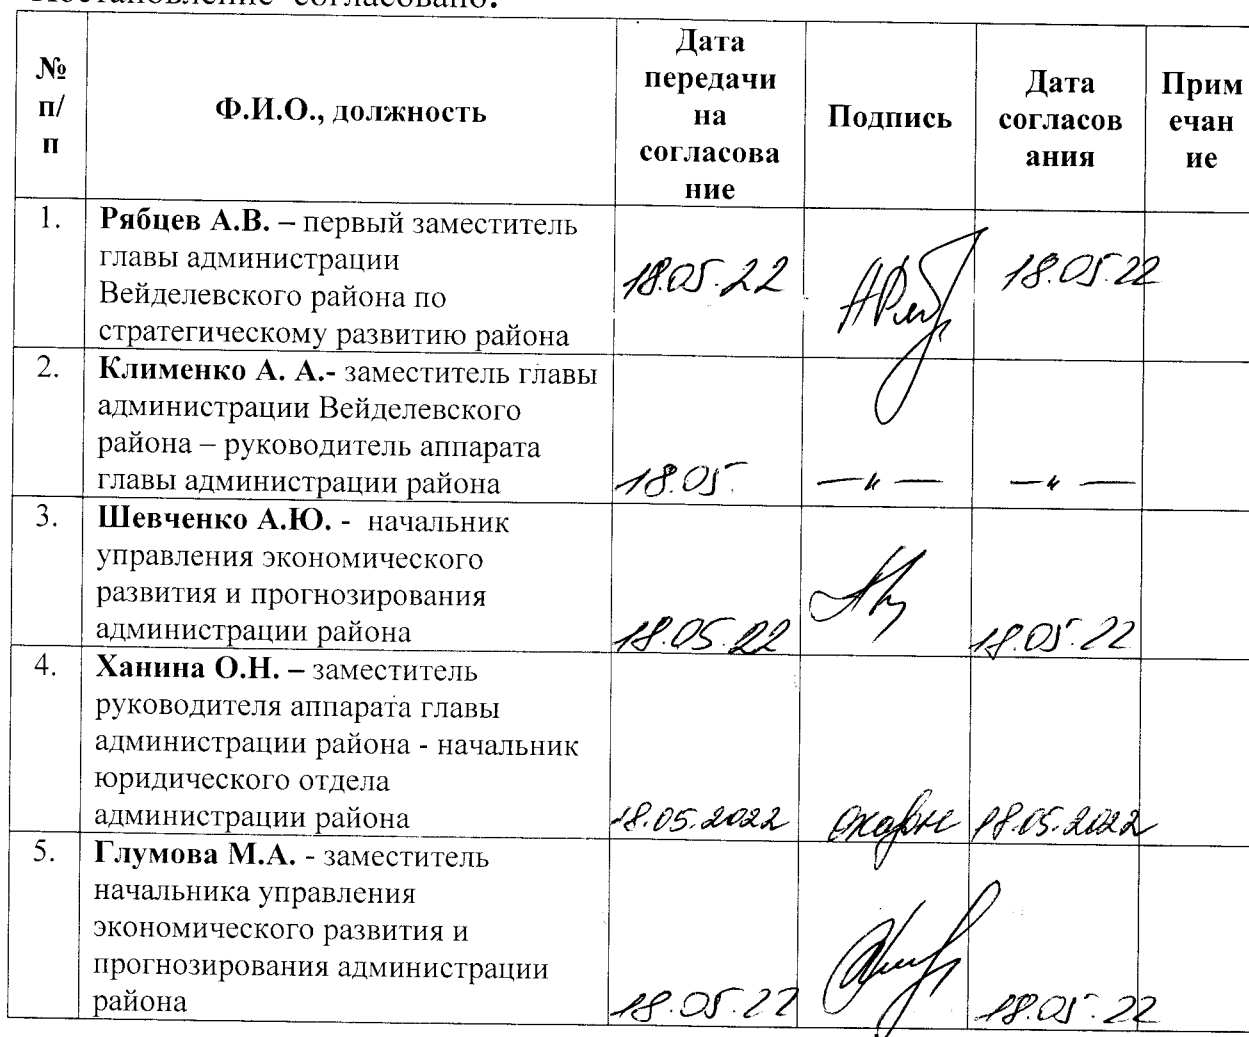 Постановление согласовано:
№ п/п
Ф.И.О., должность
Дата передачи на согласова ние
Подпись
Дата согласов ания
Прим ечан ие
1.
Рябцев А.В. – первый заместитель
главы администрации
Вейделевского района по
стратегическому развитию района
18.05.22
18.05.22
2.
Клименко А. А.- заместитель главы
администрации Вейделевского
района – руководитель аппарата
главы администрации района
18.05.
—„—
—„—
3.
Шевченко А.Ю. - начальник
управления экономического
развития и прогнозирования
администрации района
18.05.22
18.05.22
4.
Ханина О.Н. – заместитель
руководителя аппарата главы
администрации района - начальник
юридического отдела
администрации района
18.05.2022
18.05.2022
5.
Глумова М.А. - заместитель
начальника управления
экономического развития и
прогнозирования администрации
района
18.05.22
18.05.22